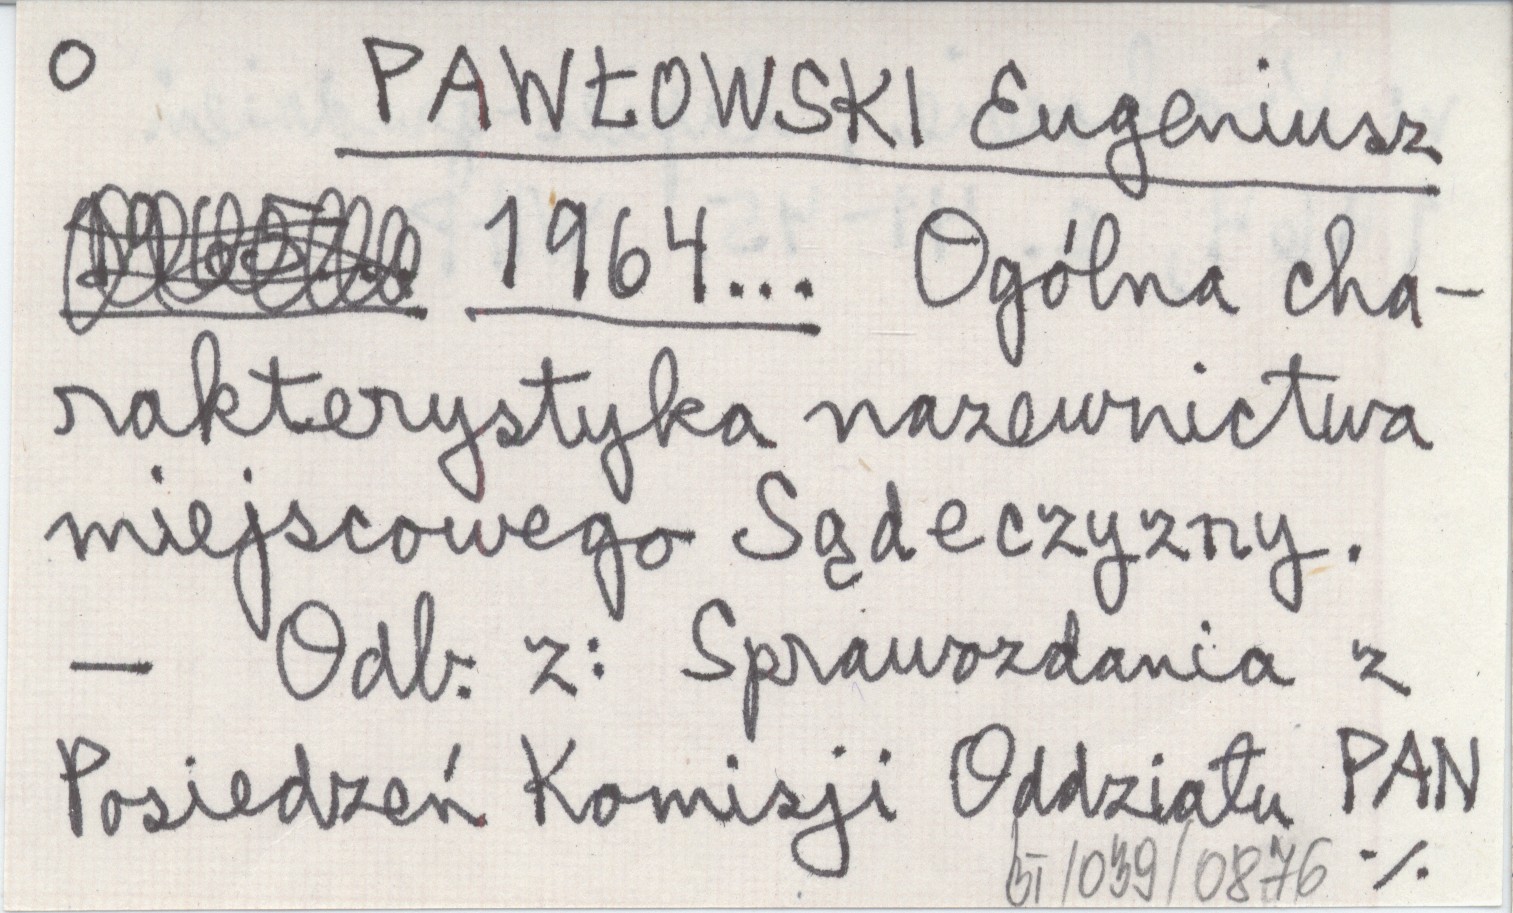 O PAWŁOWSKI Eugeniusz
1964... Ogólna cha-
rakterystyka nazewnictwa
miejscowego Sądeczyzny.
— Odb. z: Sprawozdania z
Posiedzeń Komisji Oddziału PAN
/039/0876 ·/.